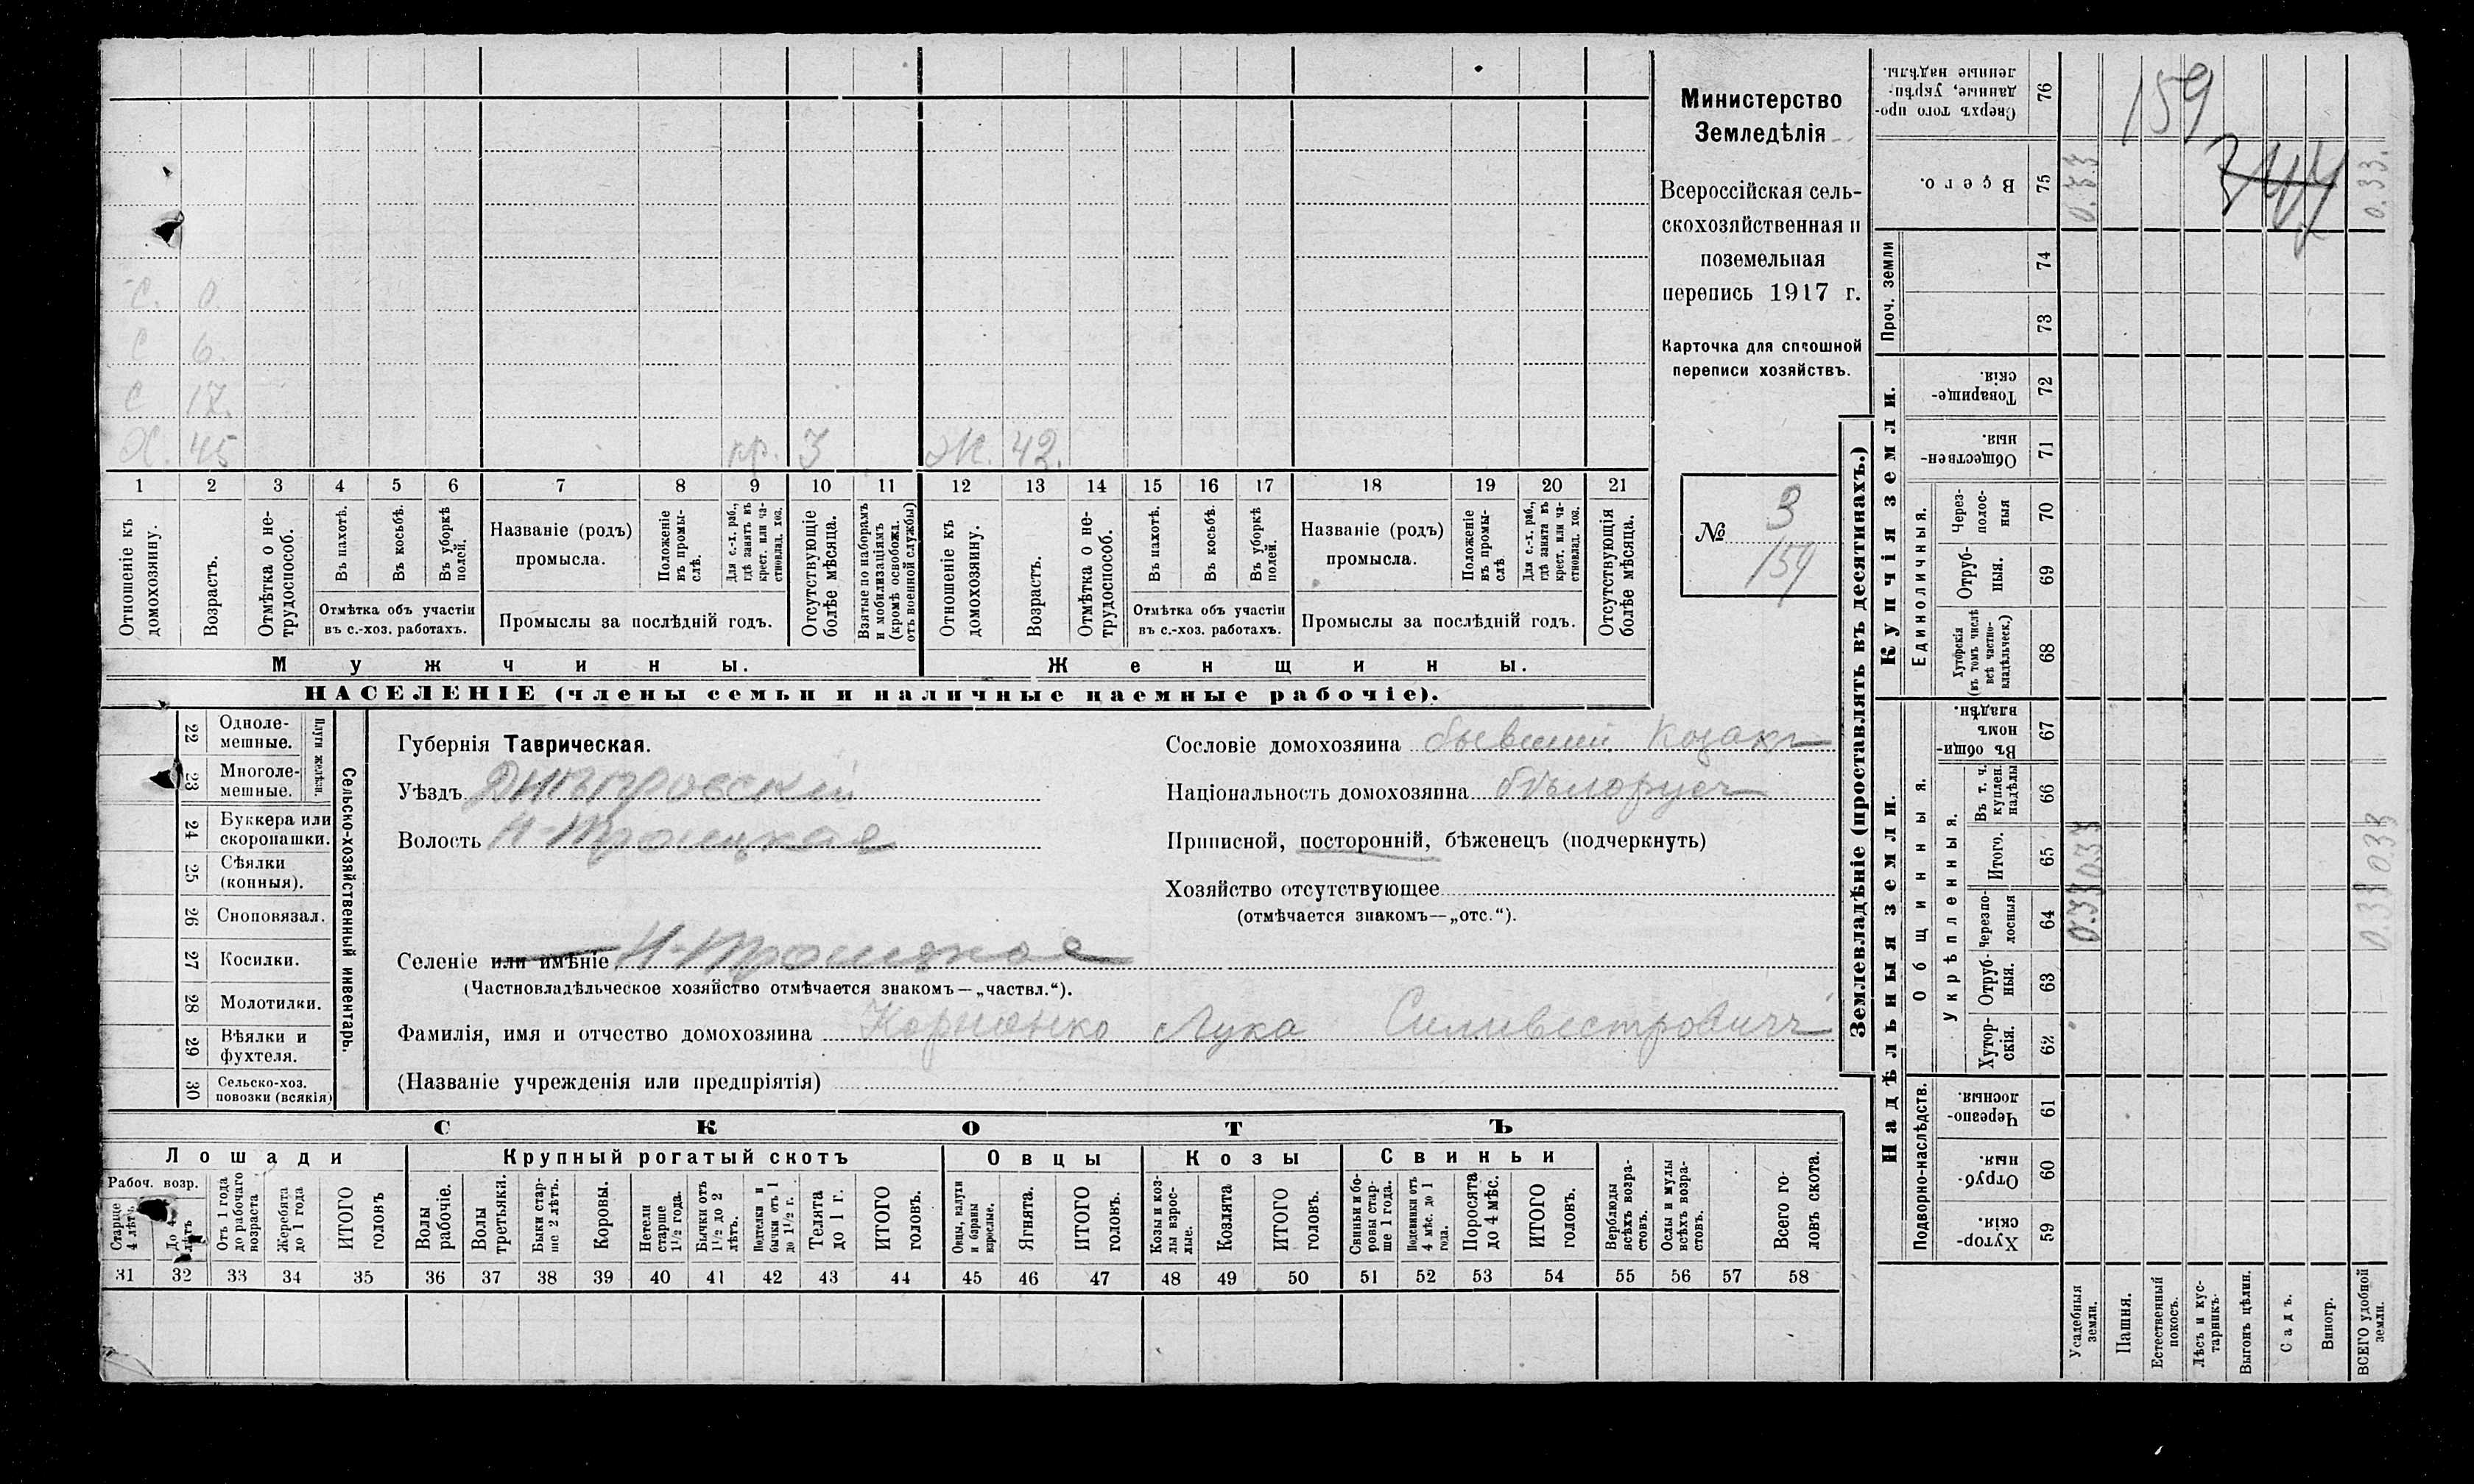 Министерство
Земледѣлія
Всероссійская сель-
скохозяйственная и
поземельная
перепись 1917 г.
Карточка для сплошной
переписи хозяйствъ.
№ 3
159
С. 0.
С 6.
С 17.
Х. 45 пр. 3 Ж. 42.
1 2 3 4 5 6 7 8 9 10 11 12 13 14 15 16 17 18 19 20 21
Отношеніе къ домохозяину.
Возрастъ.
Отмѣтка о не-трудоспособ.
Въ пахотѣ.
Въ косьбѣ.
Въ уборкѣ полей.
Отмѣтка объ участіи
въ с.-хоз. работахъ.
Названіе (родъ)
промысла.
Положеніе въ промы-слѣ.
Для с.-х. раб., гдѣ занятъ въ крест. или ча-стновлад. хоз.
Промыслы за послѣдній годъ.
Отсутствующіе болѣе мѣсяца.
Взятые по наборамъ и мобилизаціямъ (кромѣ освобожд. отъ военной службы)
Отношеніе къ домохозяину.
Возрастъ.
Отмѣтка о не-трудоспособ.
Въ пахотѣ.
Въ косьбѣ.
Въ уборкѣ полей.
Отмѣтка объ участіи
въ с.-хоз. работахъ.
Названіе (родъ)
промысла.
Положеніе въ промы-слѣ
Для с.-х. раб., гдѣ занята въ крест. или ча-стновлад. хоз.
Промыслы за послѣдній годъ.
Отсутствующія болѣе мѣсяца.
Мужчины.
Женщины.
НАСЕЛЕНІЕ (члены семьи и наличные наемные рабочіе).
22 Одноле-мешные.
23 Многоле-мешные.
Плуги желѣзн.
24 Буккера или скоропашки.
25 Сѣялки (конныя).
26 Сноповязал.
27 Косилки.
28 Молотилки.
29 Вѣялки и фухтеля.
30 Сельско-хоз. повозки (всякія)
Сельско-хозяйственный инвентарь.
Губернія Таврическая.
Уѣздъ Днѣпровскій
Волость Н-Троицкая
Селеніе или имѣніе Н-Троицкое
(Частновладѣльческое хозяйство отмѣчается знакомъ—„частвл.“).
Фамилія, имя и отчество домохозяина Корнюнко Лука Силивестровичъ
(Названіе учрежденія или предпріятія)
Сословіе домохозяина бывшій Козакъ
Національность домохозяина бѣлорусъ
Приписной, посторонній, бѣженецъ (подчеркнуть)
Хозяйство отсутствующее
(отмѣчается знакомъ—„отс.“).
СКОТЪ
Лошади
Крупный рогатый скотъ
Овцы
Козы
Свиньи
Рабоч. возр.
Старше 4 лѣтъ.
До 4 лѣтъ
Отъ 1 года до рабочаго возраста
Жеребята до 1 года
ИТОГО головъ
Волы рабочіе.
Волы третьяки.
Быки стар-ше 2 лѣтъ.
Коровы.
Нетели старше 1½ года.
Бычки отъ 1½ до 2 лѣтъ.
Подтелки и бычки отъ 1 до 1½ г.
Телята до 1 г.
ИТОГО головъ.
Овцы, валухи и бараны взрослые.
Ягнята.
ИТОГО головъ.
Козы и коз-лы взрос-лые.
Козлята
ИТОГО головъ.
Свиньи и бо-ровы стар-ше 1 года.
Подсвинки отъ 4 мѣс. до 1 года.
Поросята до 4 мѣс.
ИТОГО головъ.
Верблюды всѣхъ возра-стовъ.
Ослы и мулы всѣхъ возра-стовъ.
Всего го-ловъ скота.
31 32 33 34 35 36 37 38 39 40 41 42 43 44 45 46 47 48 49 50 51 52 53 54 55 56 57 58
Землевладѣніе (проставлять въ десятинахъ.)
Надѣльныя земли.
Купчія земли.
Проч. земли
Подворно-наслѣдств.
Общинныя.
Укрѣпленныя.
Единоличныя.
76 Сверхъ того про-данные, укрѣп-ленные надѣлы.
75 Всего.
74
73
72 Товарище-скія.
71 Обществен-ныя.
70 Через-полос-ныя
69 Отруб-ныя.
68 Хуторскія (въ томъ числѣ всѣ частно-владѣльческ.)
67 Въ общи-номъ владѣн.
66 Въ т. ч. куплен. надѣлы
65 Итого.
64 Черезпо-лосныя
63 Отруб-ныя.
62 Хутор-скія.
61 Черезпо-лосныя.
60 Отруб-ныя.
59 Хутор-скія.
Усадебныя земли.
Пашня.
Естественный покосъ.
Лѣсъ и кус-тарникъ.
Выгонъ цѣлин.
Садъ.
Виногр.
ВСЕГО удобной земли.
159
0.33
0.33.
0.33
0.33
0.33
0.33